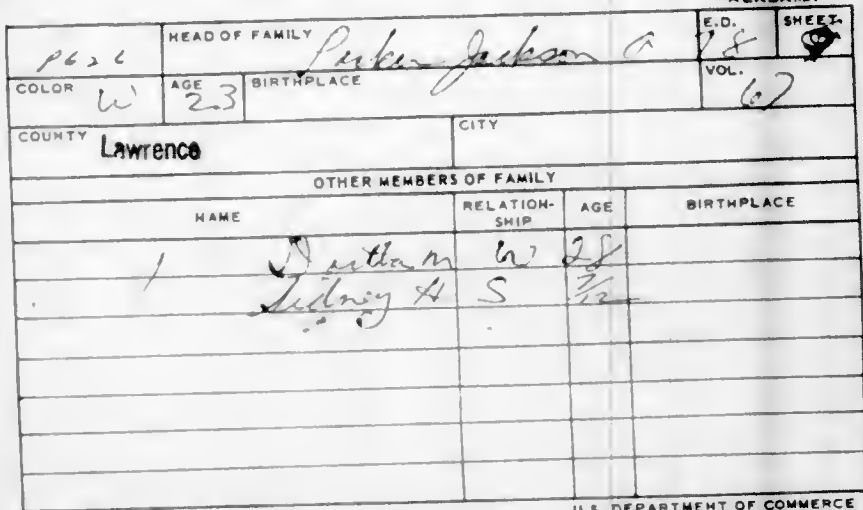 HEAD OF FAMILY Jackson A E.D. 78 SHEET
P626
COLOR W AGE 23 BIRTHPLACE VOL. 61
COUNTY Lawrence CITY
OTHER MEMBERS OF FAMILY
NAME RELATION-SHIP AGE BIRTHPLACE
M W 28
Sidney H S 7/12
U.S. DEPARTMENT OF COMMERCE